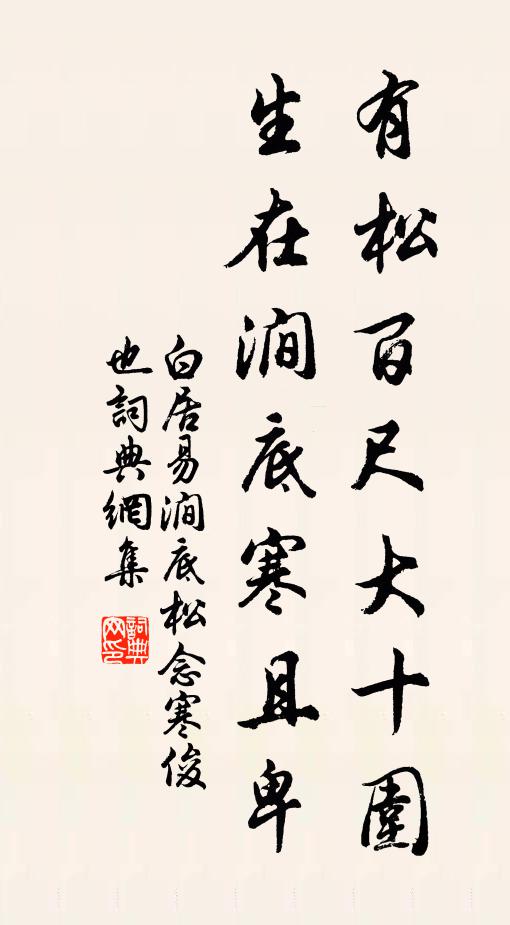 有松百尺大十圍
生在澗底寒且卑
白居易澗底松念寒俊
也詞典網集
詞典网印